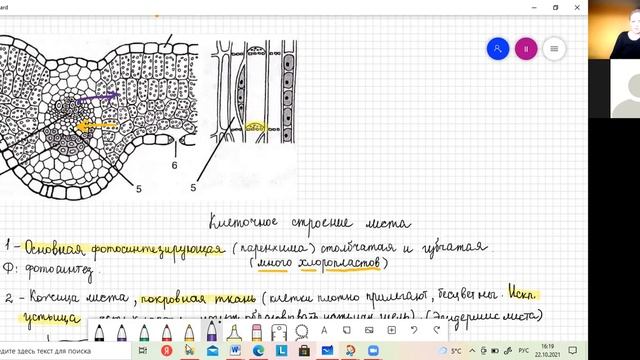 6
5
5
Клеточное строение листа
1 - Основная фотосинтезирующая (паренхима) столбчатая и губчатая.
(много хлоропластов)
Ф: фотосинтез.
2 - Кожица листа, покровная ткань (клетки плотно прилегают, бесцветны. Искл.
устьица (эпидермис листа)
едите здесь текст для поиска
5°C
РУС
16:19
22.10.2021